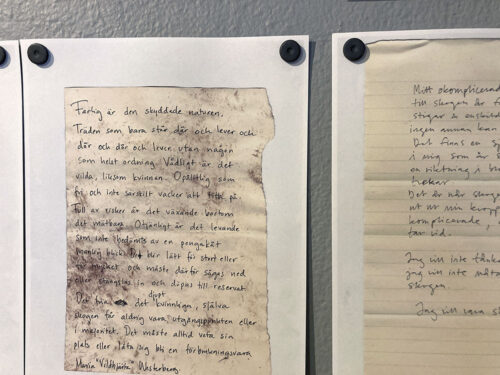 Farlig är den skyddade naturen.
Träden som bara står där och lever och
där och där och lever utan någon
som helst ordning. Vådligt är det
vilda, liksom kvinnan. Opålitlig som
fri och inte särskilt vacker att titta på.
Full av risker är det växande bortom
det mätbara. Otjänligt är det levande
som inte bedöms av en pengakåt
manlig blick. Det blir lätt för stort eller
för mycket och måste därför sågas ned
eller stängslas in och döpas till reservat.
Det djupt kvinnliga, själva
skogen får aldrig vara utgångspunkten eller
i majoritet. Det måste alltid veta sin
plats eller låta sig bli en förbrukningsvara
Maria "Vildhjärta" Westerberg.
Mitt okomplicerade
till skogen är
stigar
ingen annan
Det finns en
i mig som är
en riktning i
Det är när
ut ur min kropp
komplicerade,
tar vid.
Jag vill inte
jag vill inte
skogen.
Jag vill vara